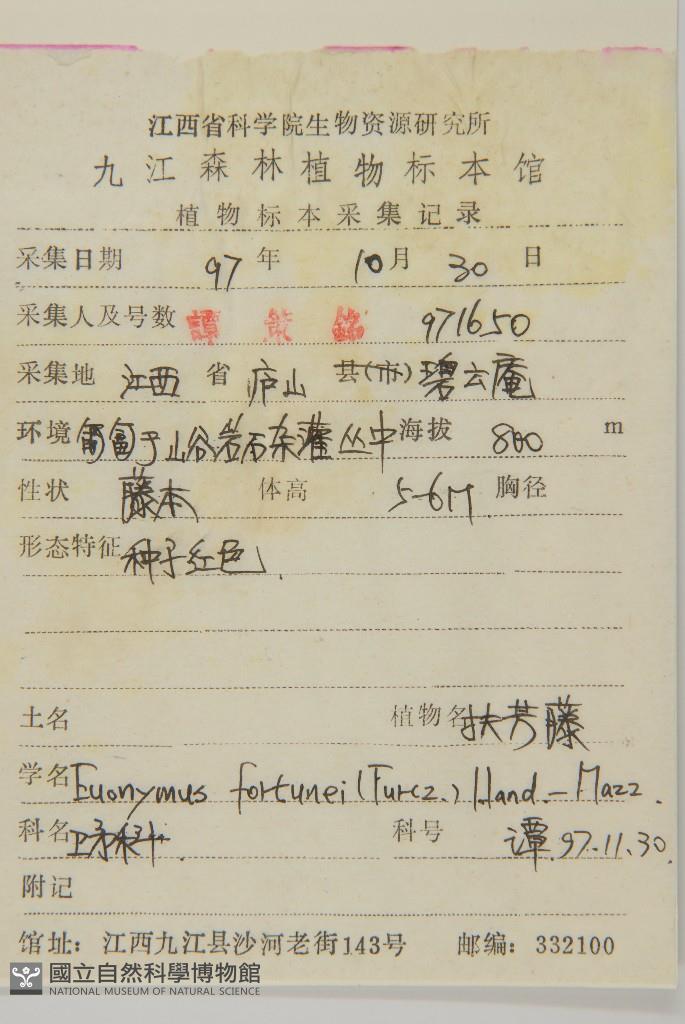 江西省科学院生物资源研究所
九江森林植物标本馆
植物标本采集记录
采集日期 97 年 10 月 30 日
采集人及号数 譚策銘 971650
采集地 江西 省 庐山 县(市) 碧云庵
环境 于山谷岩石杂灌丛中 海拔 800 m
性状 藤本 体高 5-6M 胸径
形态特征 种子红色.
土名 植物名 扶芳藤
学名 Euonymus fortunei (Turcz.) Hand.-Mazz.
科名 卫矛科. 科号 谭.97.11.30.
附记
馆址：江西九江县沙河老街143号 邮编：332100
國立自然科學博物館
NATIONAL MUSEUM OF NATURAL SCIENCE